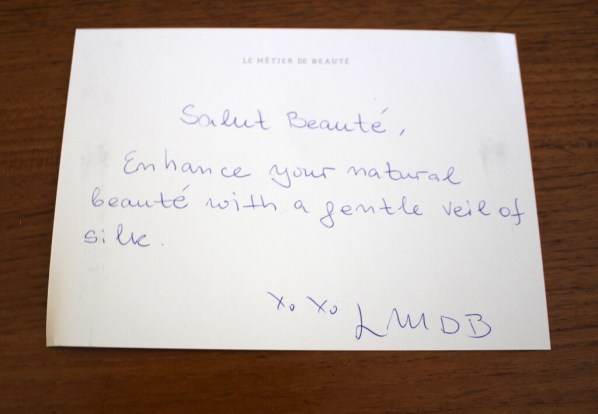 LE MÉTIER DE BEAUTÉ
Salut Beauté,
Enhance your natural
beauté with a gentle veil of
silk.
xo xo LMDB